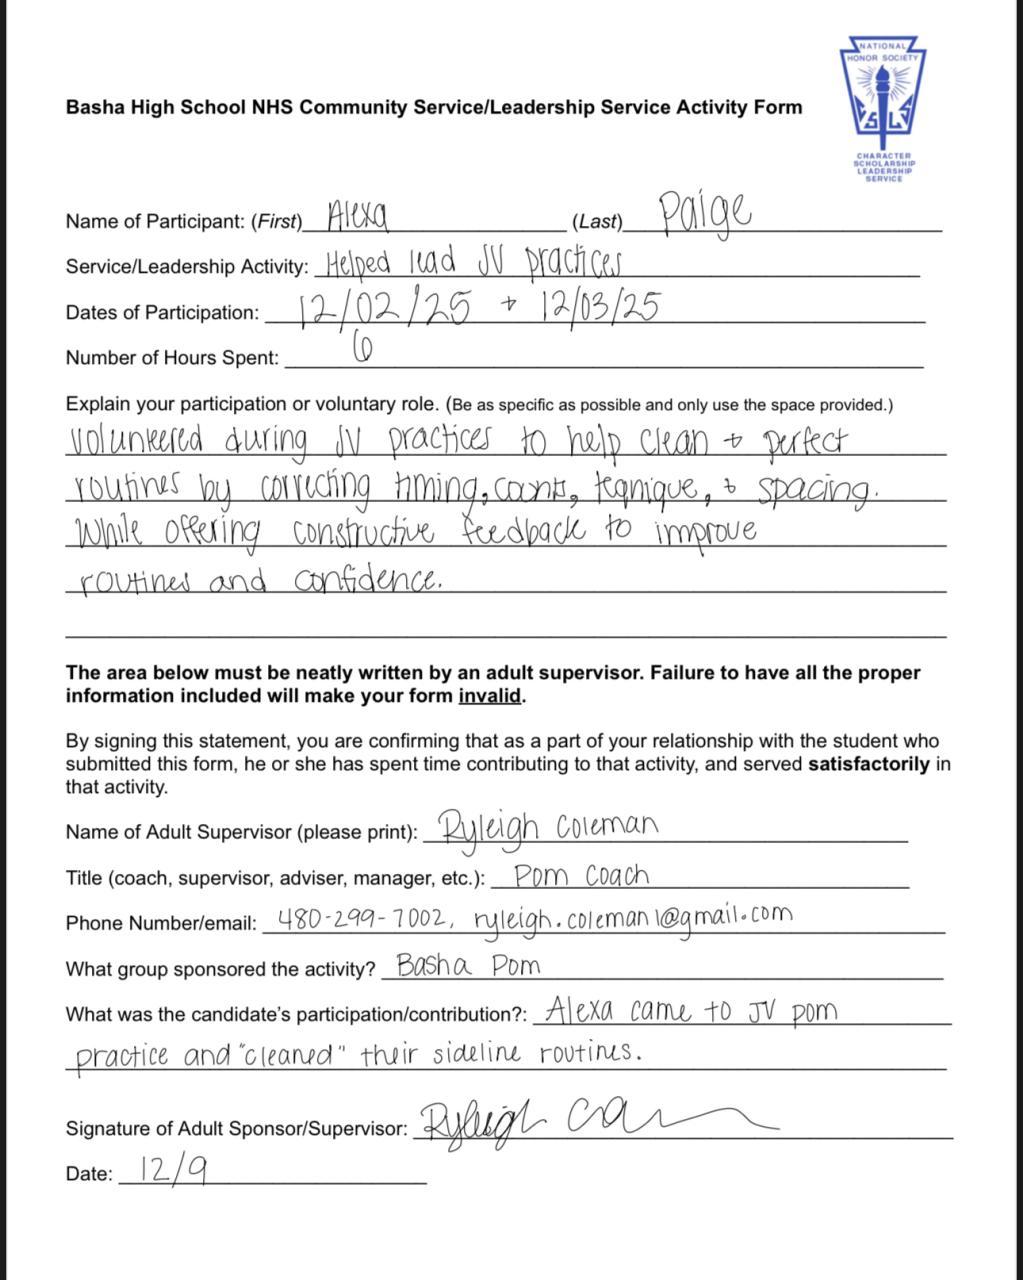 NATIONAL
HONOR SOCIETY
S L S
CHARACTER
SCHOLARSHIP
LEADERSHIP
SERVICE
Basha High School NHS Community Service/Leadership Service Activity Form
Name of Participant: (First) Alexa (Last) Paige
Service/Leadership Activity: Helped lead JV practices
Dates of Participation: 12/02/25 + 12/03/25
Number of Hours Spent: 6
Explain your participation or voluntary role. (Be as specific as possible and only use the space provided.)
Volunteered during JV practices to help clean + perfect
routines by correcting timing, counts, teqnique, + spacing.
While offering constructive feedback to improve
routines and confidence.
The area below must be neatly written by an adult supervisor. Failure to have all the proper
information included will make your form invalid.
By signing this statement, you are confirming that as a part of your relationship with the student who
submitted this form, he or she has spent time contributing to that activity, and served satisfactorily in
that activity.
Name of Adult Supervisor (please print): Ryleigh Coleman
Title (coach, supervisor, adviser, manager, etc.): Pom Coach
Phone Number/email: 480-299-7002, ryleigh.coleman1@gmail.com
What group sponsored the activity? Basha Pom
What was the candidate's participation/contribution?: Alexa came to JV pom
practice and "cleaned" their sideline routines.
Signature of Adult Sponsor/Supervisor: Ryleigh
Date: 12/9